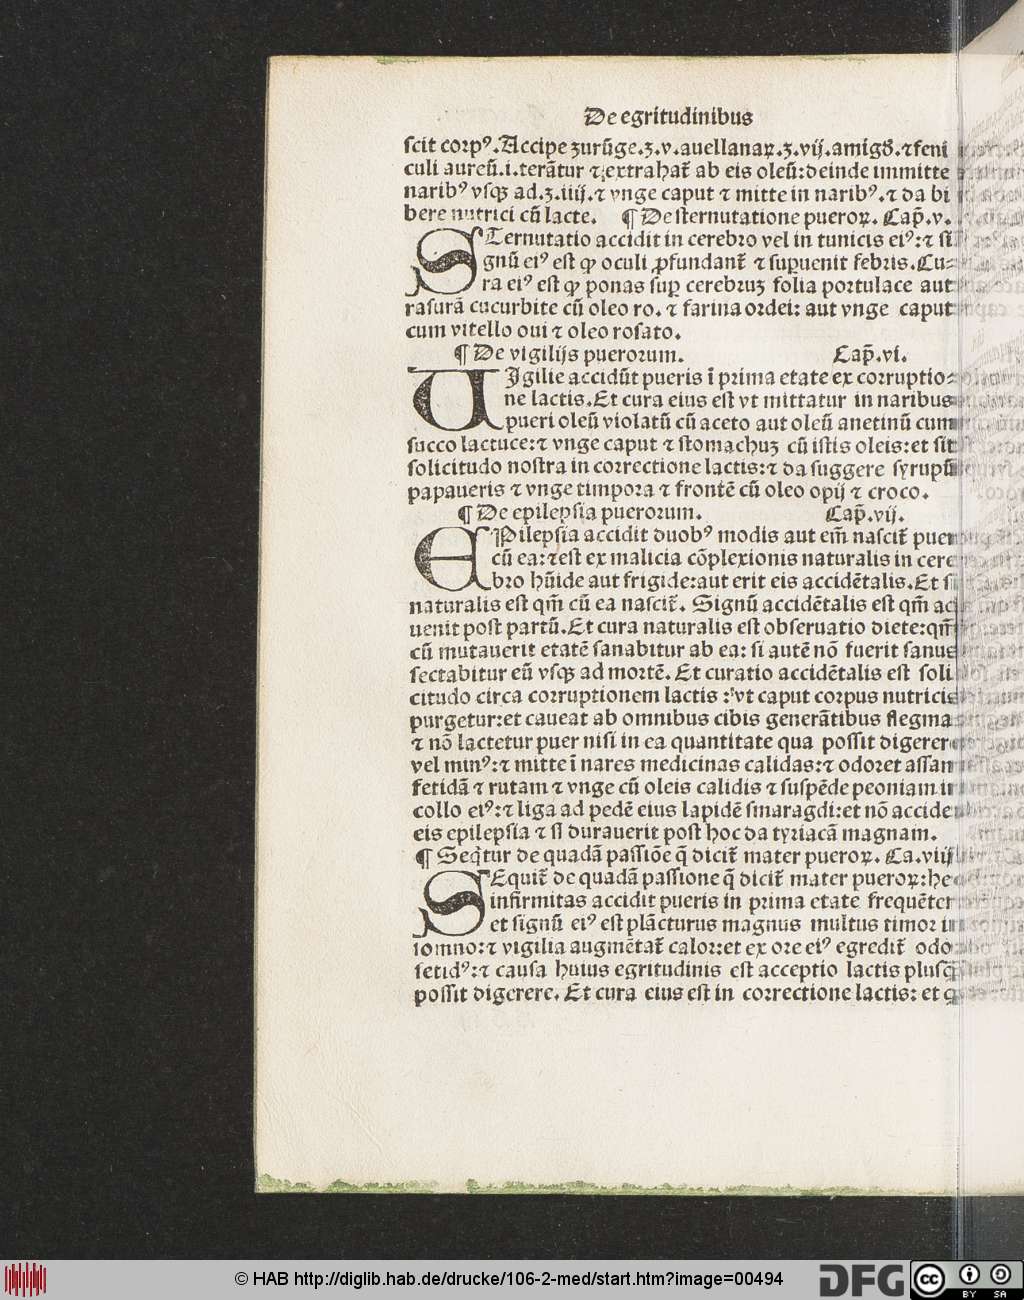 De egritudinibus
scit corpꝰ. Accipe zurūge.ʒ.v.auellanaꝝ.ʒ.vij.amigd̄.⁊feni
culi aureū.i.terāt̄ur ⁊ extrahat̄ ab eis oleū:deinde immitte
naribꝰ vsqꝫ ad.ʒ.iiij.⁊ vnge caput ⁊ mitte in naribꝰ.⁊ da bi
bere nutrici cū lacte. ¶ De sternutatione pueroꝝ. Cap̄.v.
STernutatio accidit in cerebro vel in tunicis eiꝰ:⁊ si
gnū eiꝰ est ꝙ oculi ꝓfundant̄ ⁊ suꝑuenit febris.Cu⸗
ra eiꝰ est ꝙ ponas suꝑ cerebruꝫ folia portulace aut
rasurā cucurbite cū oleo ro. ⁊ farina ordei: aut vnge caput
cum vitello oui ⁊ oleo rosato.
¶ De vigilijs puerorum. Cap̄.vi.
UJgilie accidūt pueris ī prima etate ex corruptio⸗
ne lactis.Et cura eius est vt mittatur in naribus
pueri oleū violatū cū aceto aut oleū anetinū cum
succo lactuce:⁊ vnge caput ⁊ stomachuꝫ cū istis oleis:et sit
solicitudo nostra in correctione lactis:⁊ da suggere syrupū
papaueris ⁊ vnge timpora ⁊ frontē cū oleo opij ⁊ croco.
¶ De epilepsia puerorum. Cap̄.vij.
EPilepsia accidit duobꝰ modis aut em̄ nascit̄ puer
cū ea:⁊est ex malicia cōplexionis naturalis in cere
bro hūide aut frigide:aut erit eis accidētalis.Et si
naturalis est qm̄ cū ea nascit̄. Signū accidētalis est qm̄ ad
uenit post partū.Et cura naturalis est obseruatio diete:qm̄
cū mutauerit etatē sanabitur ab ea: si autē nō fuerit sanus
sectabitur eū vsqꝫ ad mortē. Et curatio accidētalis est soli
citudo circa corruptionem lactis : vt caput corpus nutricis
purgetur:et caueat ab omnibus cibis generātibus flegma
⁊ nō lactetur puer nisi in ea quantitate qua possit digerere
vel minꝰ:⁊ mitte ī nares medicinas calidas:⁊ odoret assam
fetidā ⁊ rutam ⁊ vnge cū oleis calidis ⁊ suspēde peoniam in
collo eiꝰ:⁊ liga ad pedē eius lapidē smaragdi:et nō accidet
eis epilepsia ⁊ si durauerit post hoc da tyriacā magnam.
¶ Seqt̄ur de quadā passiōe q̄ dicit̄ mater pueroꝝ. Ca.viij
SEquit̄ de quadā passione q̄ dicit̄ mater pueroꝝ:hec
infirmitas accidit pueris in prima etate frequēter
et signū eiꝰ est plācturus magnus multus timor in
somno:⁊ vigilia augmētat̄ calor:et ex ore eiꝰ egredit̄ odor
fetidꝰ:⁊ causa huius egritudinis est acceptio lactis plusq̄
possit digerere. Et cura eius est in correctione lactis: et
© HAB http://diglib.hab.de/drucke/106-2-med/start.htm?image=00494
DFG
cc
BY SA